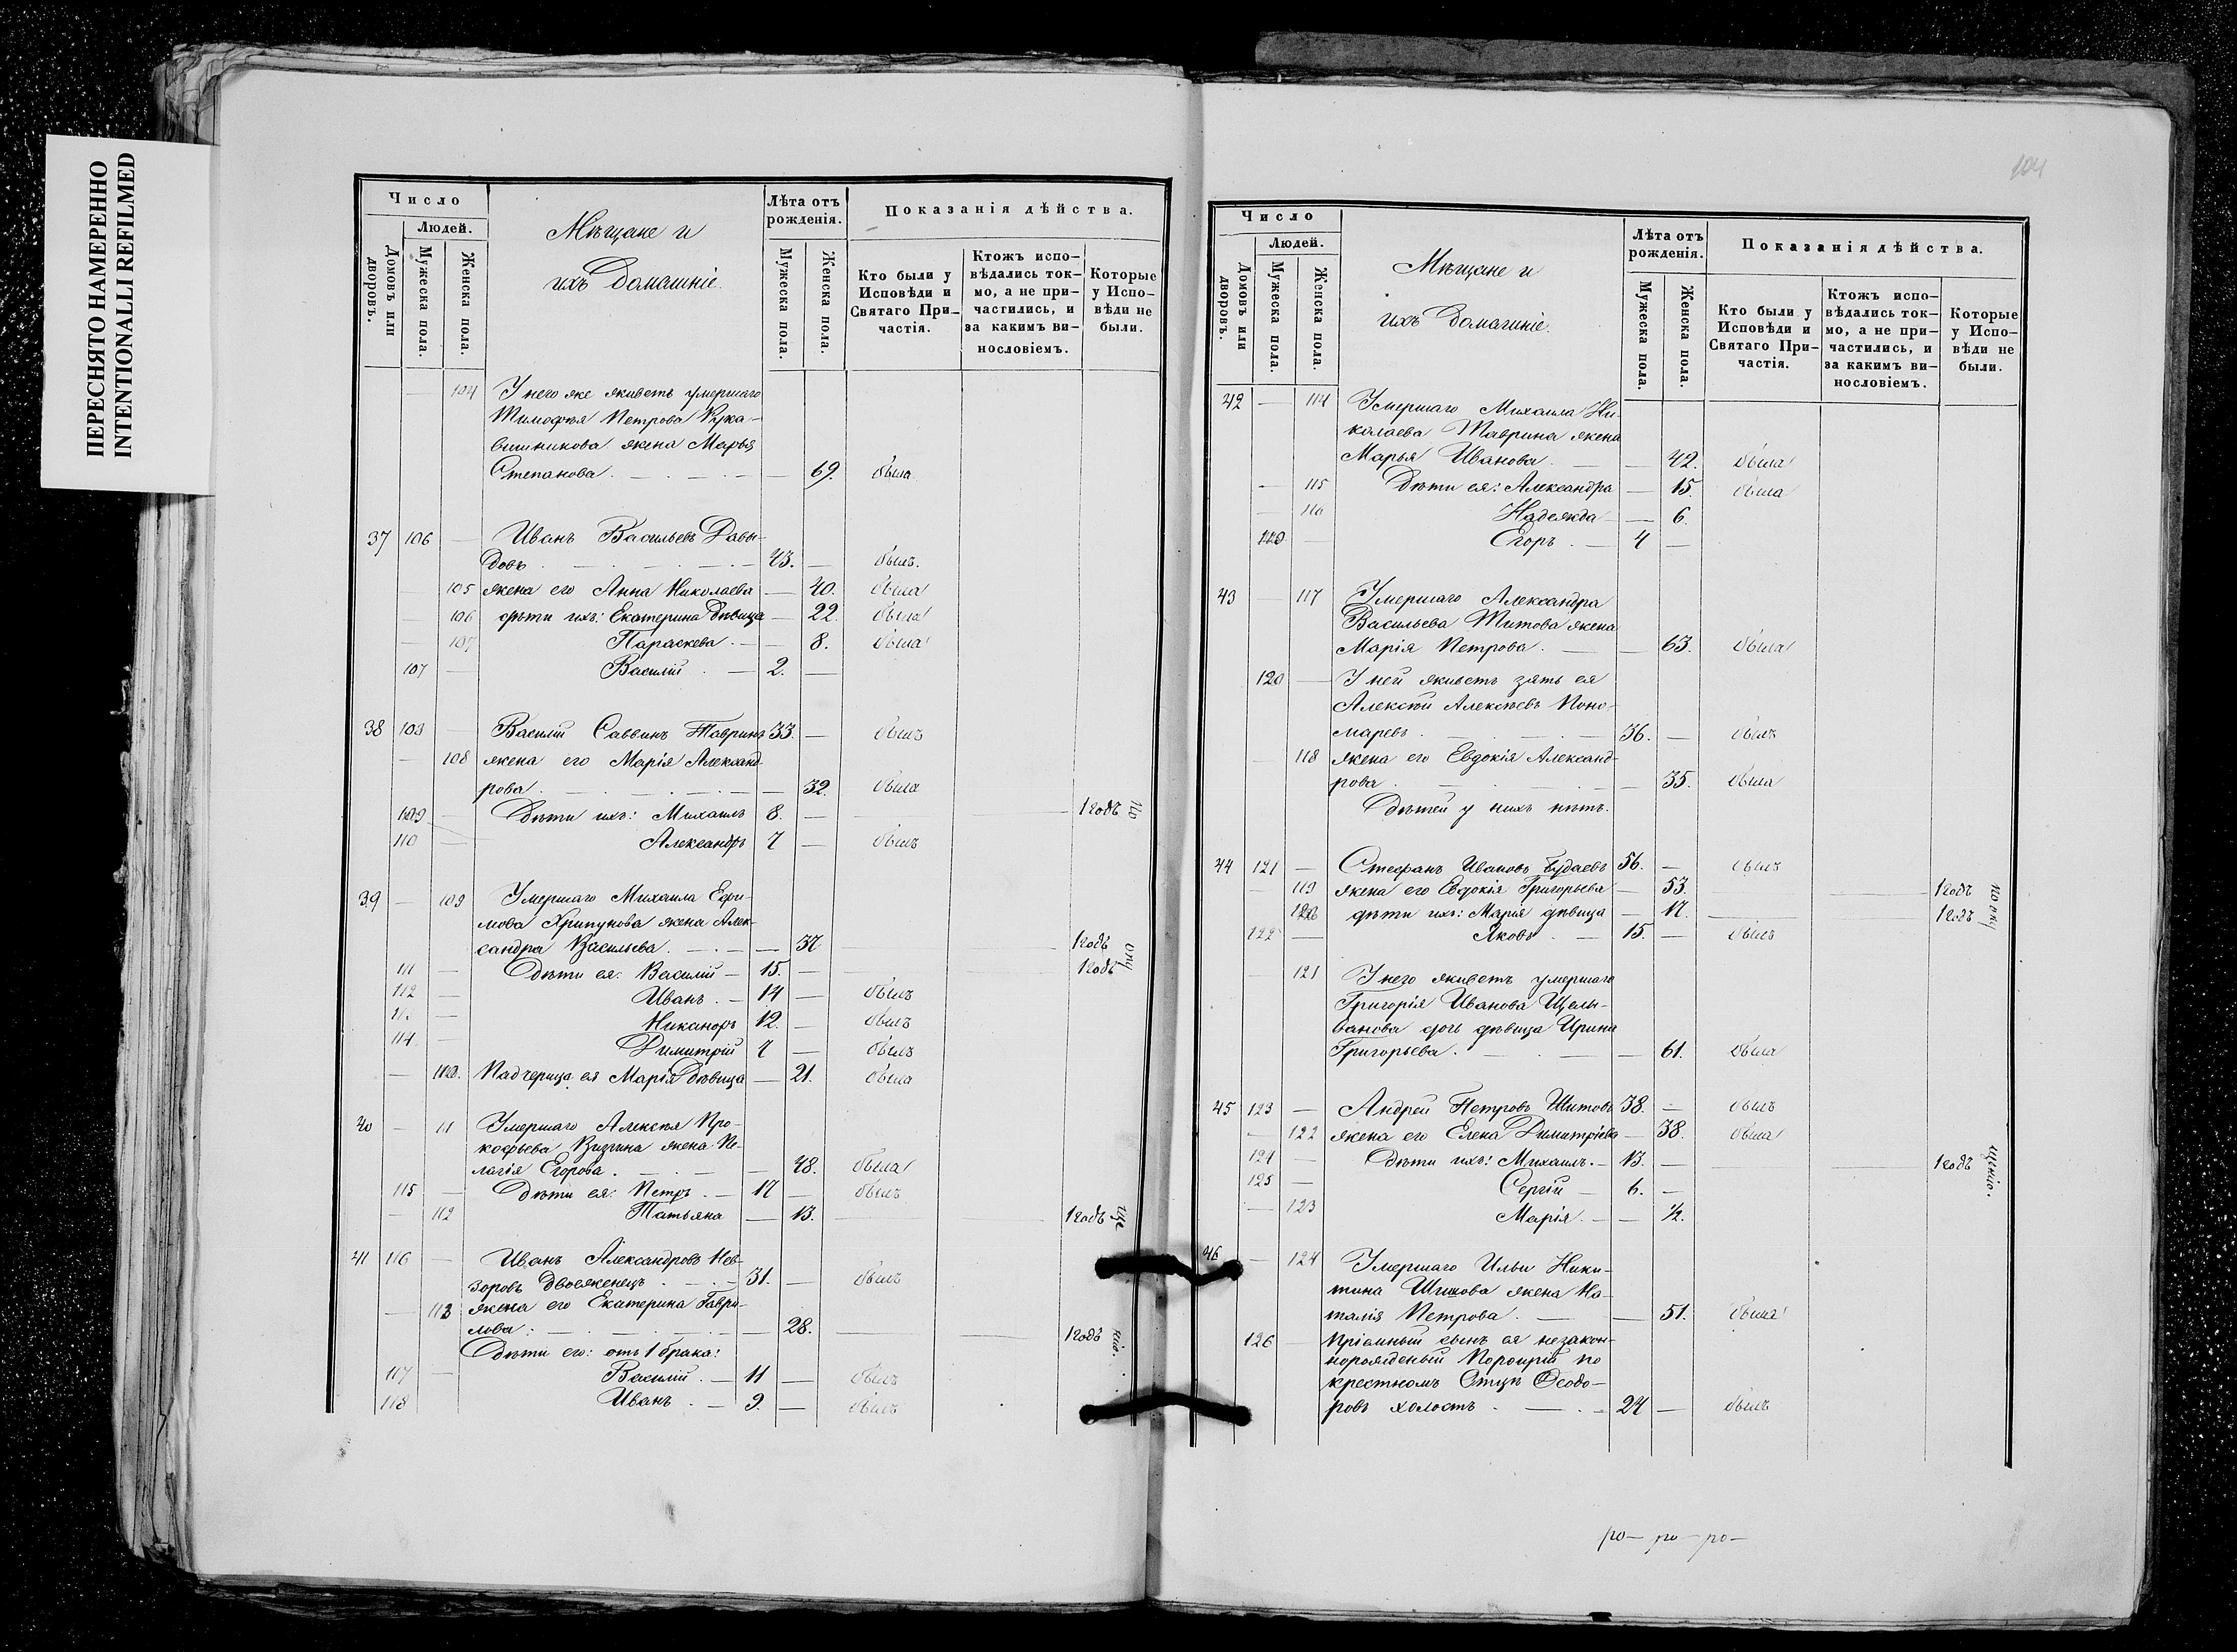 ПЕРЕСНЯТО НАМЕРЕННО
INTENTIONALLI REFILMED
Число
Людей.
Домовъ или дворовъ.
Мужеска пола.
Женска пола.
Мѣщане и
ихъ домашніе.
Лѣта отъ рожденія.
Мужеска пола.
Женска пола.
Показанія дѣйства.
Кто были у Исповѣди и Святаго Причастія.
Ктожъ исповѣдались токмо, а не причастились, и за какимъ винословіемъ.
Которые у Исповѣди не были.
— 104 У него же живетъ умершаго
Тимофея Петрова Рука-
вишникова жена Марья
Степанова. — 69. была
37 106 — Иванъ Васильевъ Давы-
довъ 43. — былъ.
— 105 жена его Анна Николаева — 40. была
— 106 дѣти ихъ: Екатерина дѣвица — 22. была
— 107 Параскева. — 8. была
107 — Василій. — 2. —
38 108 — Василій Саввинъ Тавринъ 33. — былъ
— 108 жена его Марія Александ-
рова. — 32. была
109 — Дѣти ихъ: Михаилъ 8. — 1 годъ по
110 — Александръ 7 — былъ
39 — 109 Умершаго Михаила Ефи-
мова Хрипунова жена Алек-
сандра Васильева. — 37 1 годъ опу
111 — Дѣти ея: Василій — 15. — 1 годъ
112 — Иванъ. — 14 — былъ
— Никаноръ 12. — былъ
114 — Димитрій 7 — былъ
— 110. Падчерица ея Марія дѣвица — 21. была
40 — 111 Умершаго Алексѣя Про-
кофьева Визгина жена Пе-
лагія Егорова. — 48. была
115 — Дѣти ея: Петръ. — 17 — былъ
— 112 Татьяна — 13. 1 годъ ще
41 116 — Иванъ Александровъ Нев-
зоровъ двоеженецъ 31. — былъ
— 113 жена его Екатерина Гаври-
лова: — 28. 1 годъ нію.
Дѣти его: отъ 1 брака:
117 — Василій. — 11 — былъ
118 Иванъ. — 9. — былъ
104
Число
Людей.
Домовъ или дворовъ.
Мужеска пола.
Женска пола.
Мѣщане и
ихъ домашніе.
Лѣта отъ рожденія.
Мужеска пола.
Женска пола.
Показанія дѣйства.
Кто были у Исповѣди и Святаго Причастія.
Ктожъ исповѣдались токмо, а не причастились, и за какимъ винословіемъ.
Которые у Исповѣди не были.
42 — 114 Умершаго Михаила Ни-
колаева Таврина жена
Марья Иванова. — 42. была
— 115 Дѣти ея: Александра — 15. была
— 116 Надежда — 6.
— Егоръ. — 4 —
43 — 117 Умершаго Александра
Васильева Титова жена
Марія Петрова. — 63. была
120 — У ней живетъ зять ея
Алексѣй Алексѣевъ Поно-
маревъ. 36. — былъ
— 118 жена его Евдокія Александ-
рова. — 35. была
Дѣтей у нихъ нѣтъ.
44 121 — Стефанъ Ивановъ Будаевъ 56. — былъ
— 119 жена его Евдокія Григорьева — 53. 1 годъ
120 дѣти ихъ: Марія дѣвица — 17. 1 годъ
122 — Яковъ. — 15. — былъ
121 У него живетъ умершаго
Григорія Иванова Щелы-
ванова дочь дѣвица Ирина
Григорьева. — 61. была
45 123 — Андрей Петровъ Шитовъ 38. — былъ
— 122 жена его Елена Димитріева — 38. была
124 — Дѣти ихъ: Михаилъ. — 13. — 1 годъ щенію.
125 — Сергій — 6. —
— 123 Марія. — — ½.
46 — 124 Умершаго Ильи Ники-
тина Шитова жена На-
талія Петрова. — 51. была
126 — Пріемный сынъ ея незакон-
норожденый Порфирій по
крестномъ Отцѣ Ѳеодо-
ровъ холостъ. — 24 — былъ
ро — ро — ро —